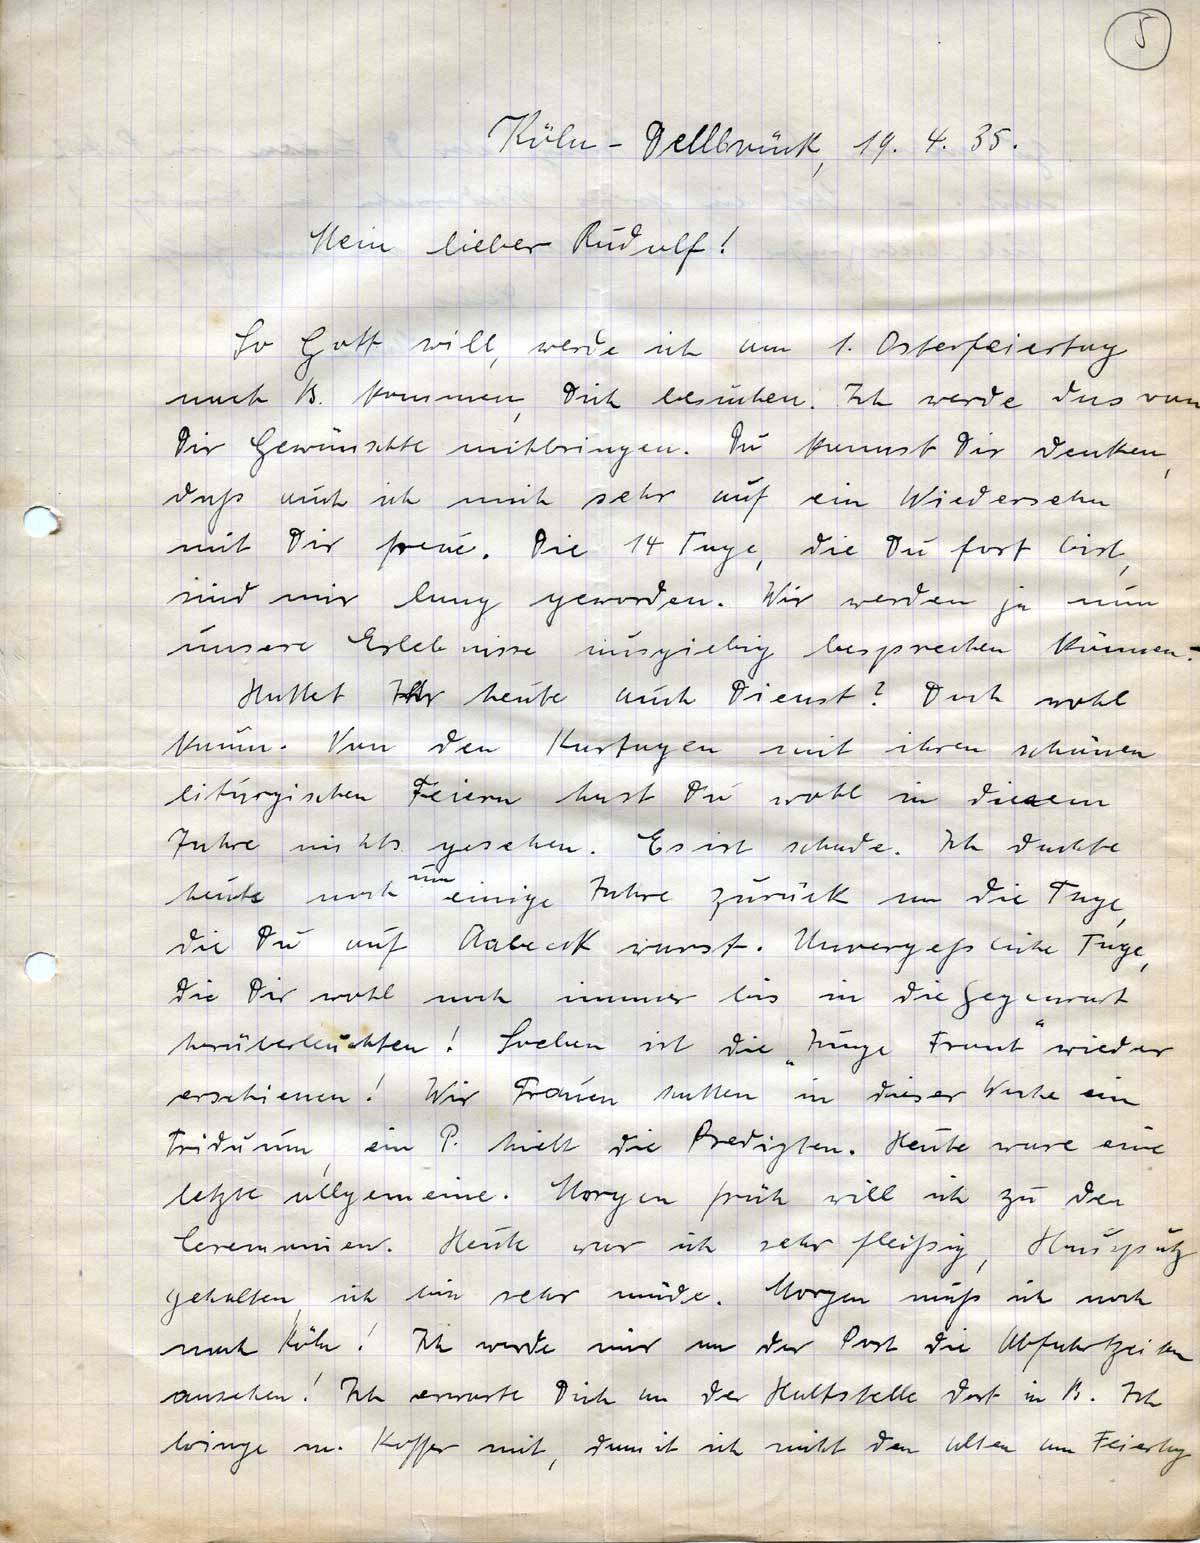 5
Köln-Dellbrück, 19. 4. 35.
Mein lieber Rudolf!
So Gott will, werde ich am 1. Osterfeiertag
nach B. kommen, Dich besuchen. Ich werde das von
Dir Gewünschte mitbringen. Du kannst Dir denken,
daß auch ich mich sehr auf ein Wiedersehn
mit Dir freue. Die 14 Tage, die Du fort bist,
sind mir lang geworden. Wir werden ja nun
unsere Erlebnisse ausgiebig besprechen können.
Hattet Ihr heute auch Dienst? Doch wohl
kaum. Von den Kartagen mit ihren schönen
liturgischen Feiern hast Du wohl in diesem
Jahre nichts gesehen. Es ist schade. Ich dachte
heute noch um einige Jahre zurück an die Tage,
die Du auf warst. Unvergeßliche Tage,
die Dir wohl noch immer bis in die Gegenwart
herüberleuchten! Soeben ist die „Junge Front“ wieder
erschienen! Wir Frauen hatten in dieser Woche ein
Triduum, ein P. hielt die Predigten. Heute ware eine
letzte allgemeine. Morgen früh will ich zu den
Ceremonien. Heute war ich sehr fleißig, Hausputz
gehalten, ich bin sehr müde. Morgen muß ich noch
nach Köln! Ich werde mir an der Post die Abfahrtzeiten
ansehen! Ich erwarte Dich an der Haltstelle dort in B. Ich
bringe m. Koffer mit, damit ich nicht den alten am Feiertag